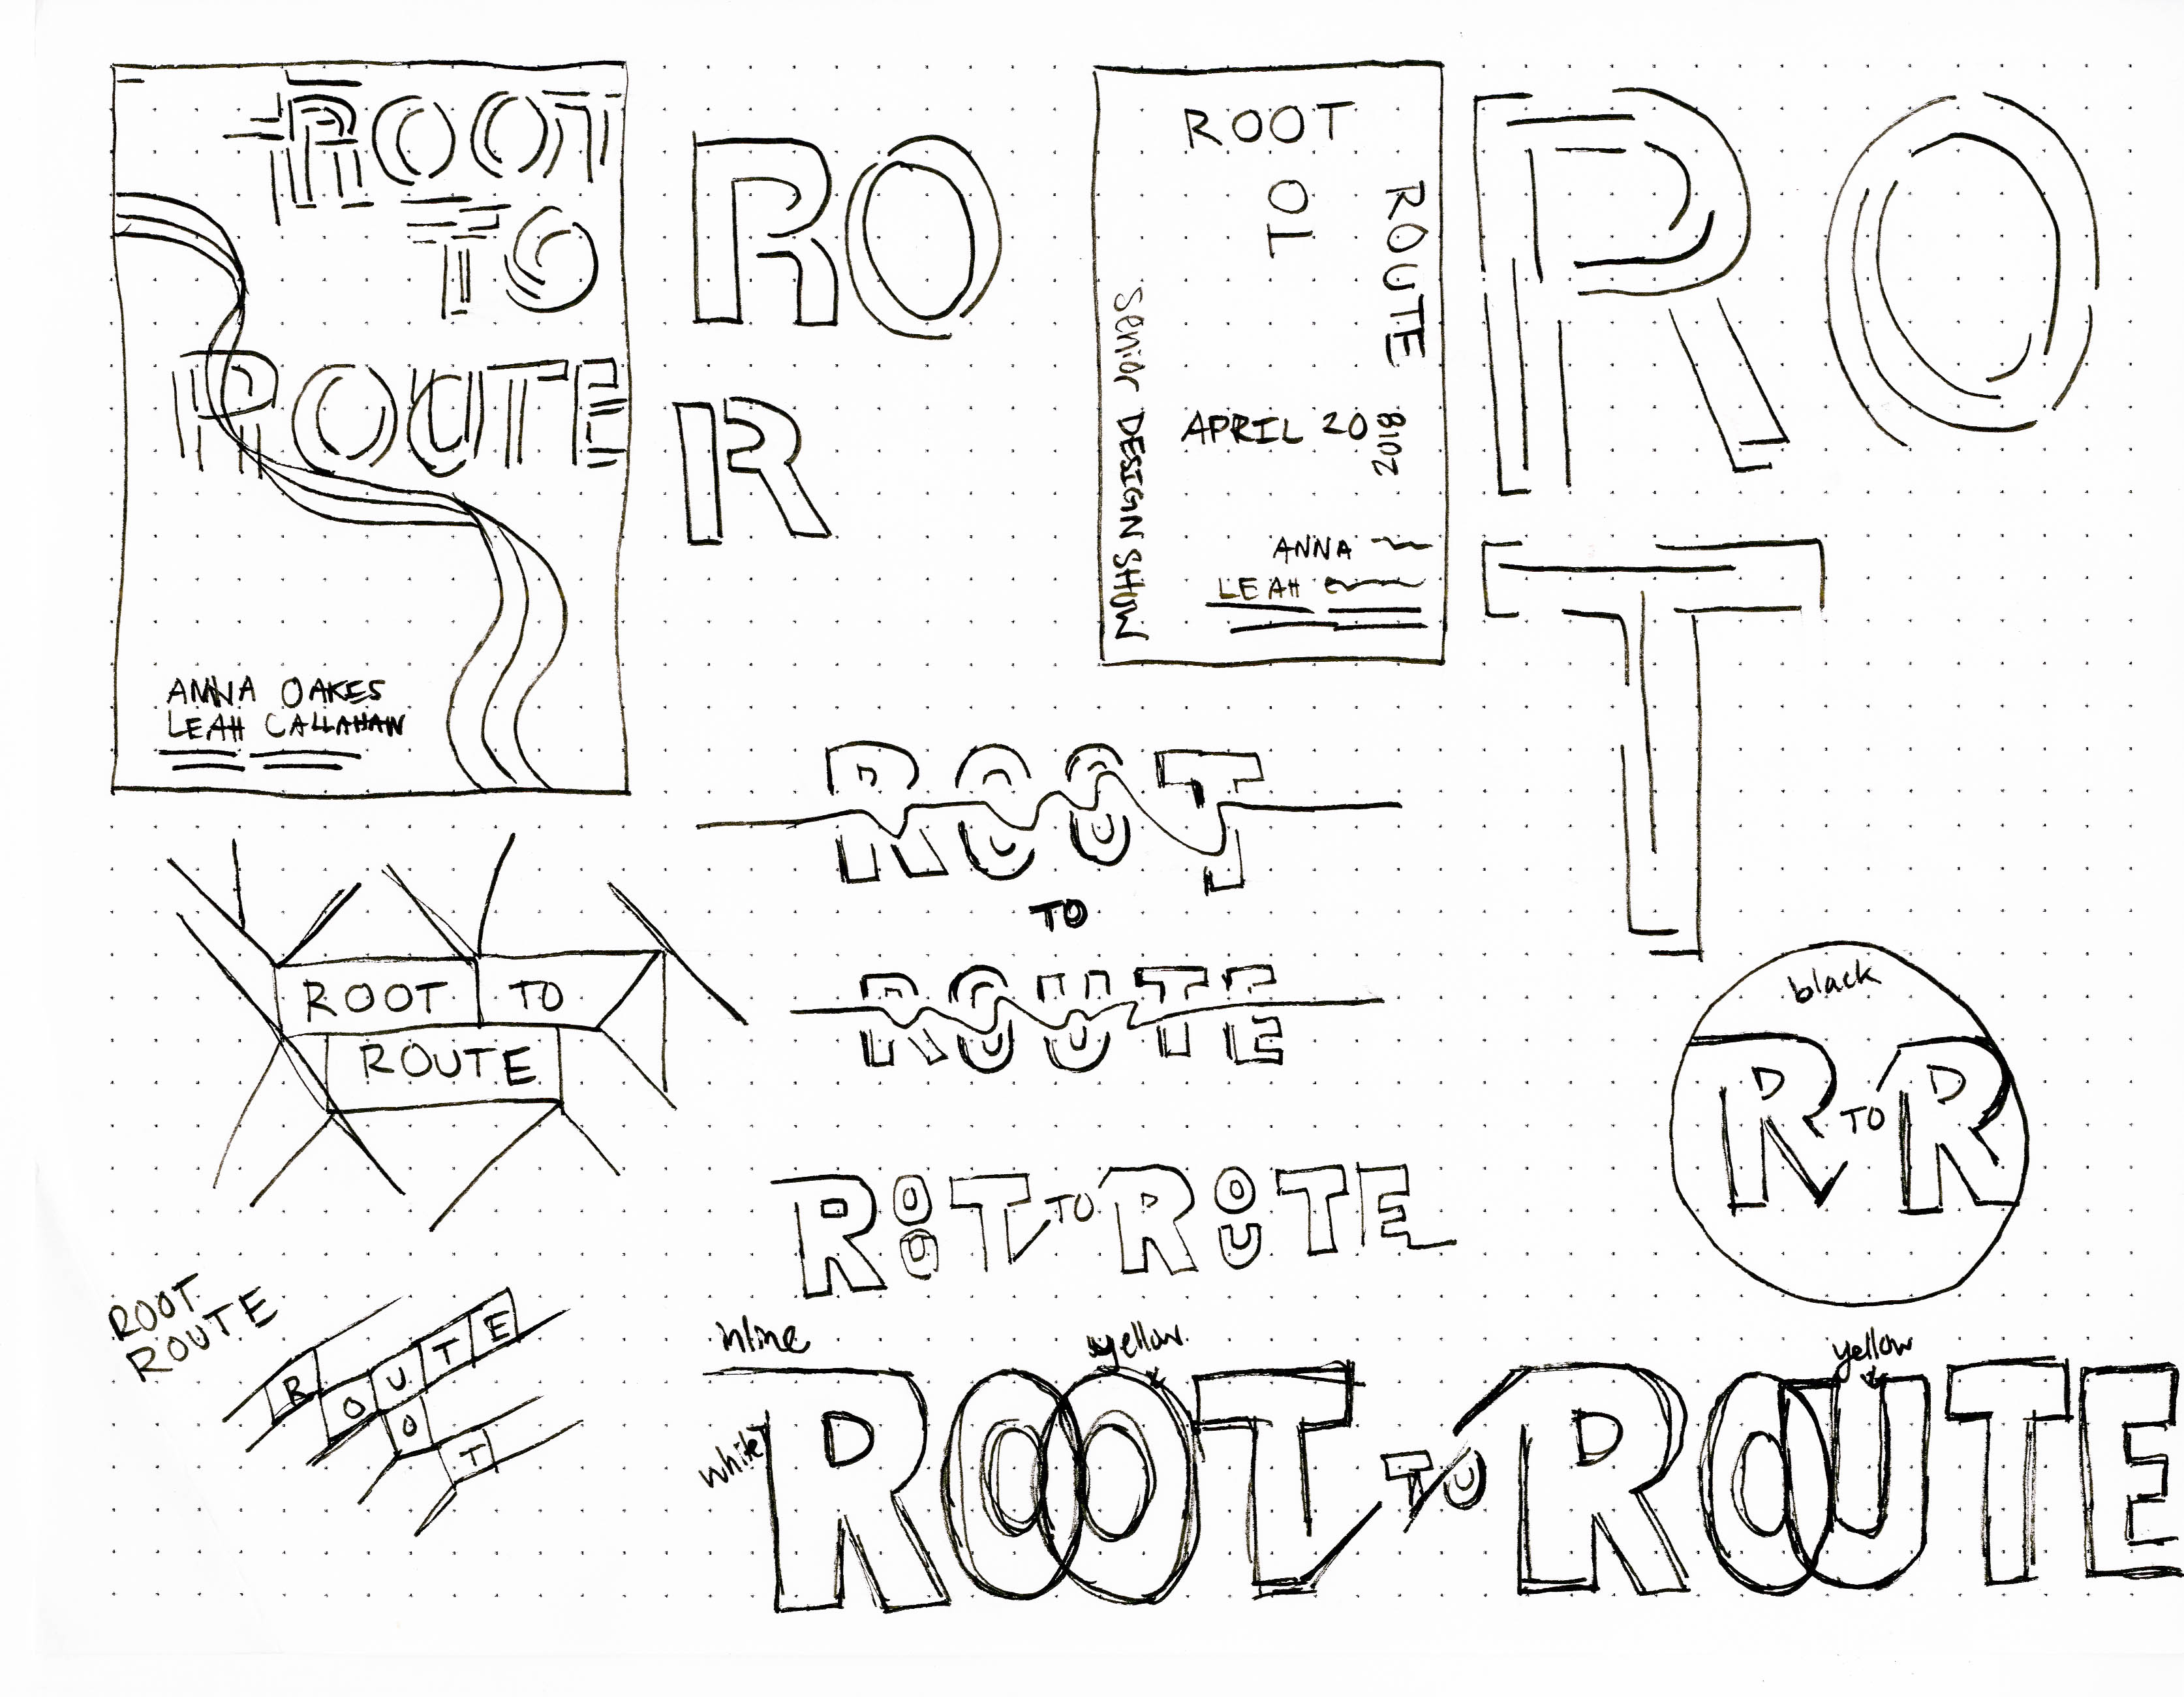 ROOT
TO
ROUTE
ANNA OAKES
LEAH CALLAHAN
RO
R
ROOT
TO
ROUTE
Senior DESIGN SHOW
APRIL 20
2018
ANNA
LEAH
RO
T
ROOT
TO
ROUTE
ROOT TO
ROUTE
black
R TO R
ROOT TO ROUTE
ROOT
ROUTE
ROUTE
O
T
inline
yellow
yellow
white
ROOT TO ROUTE